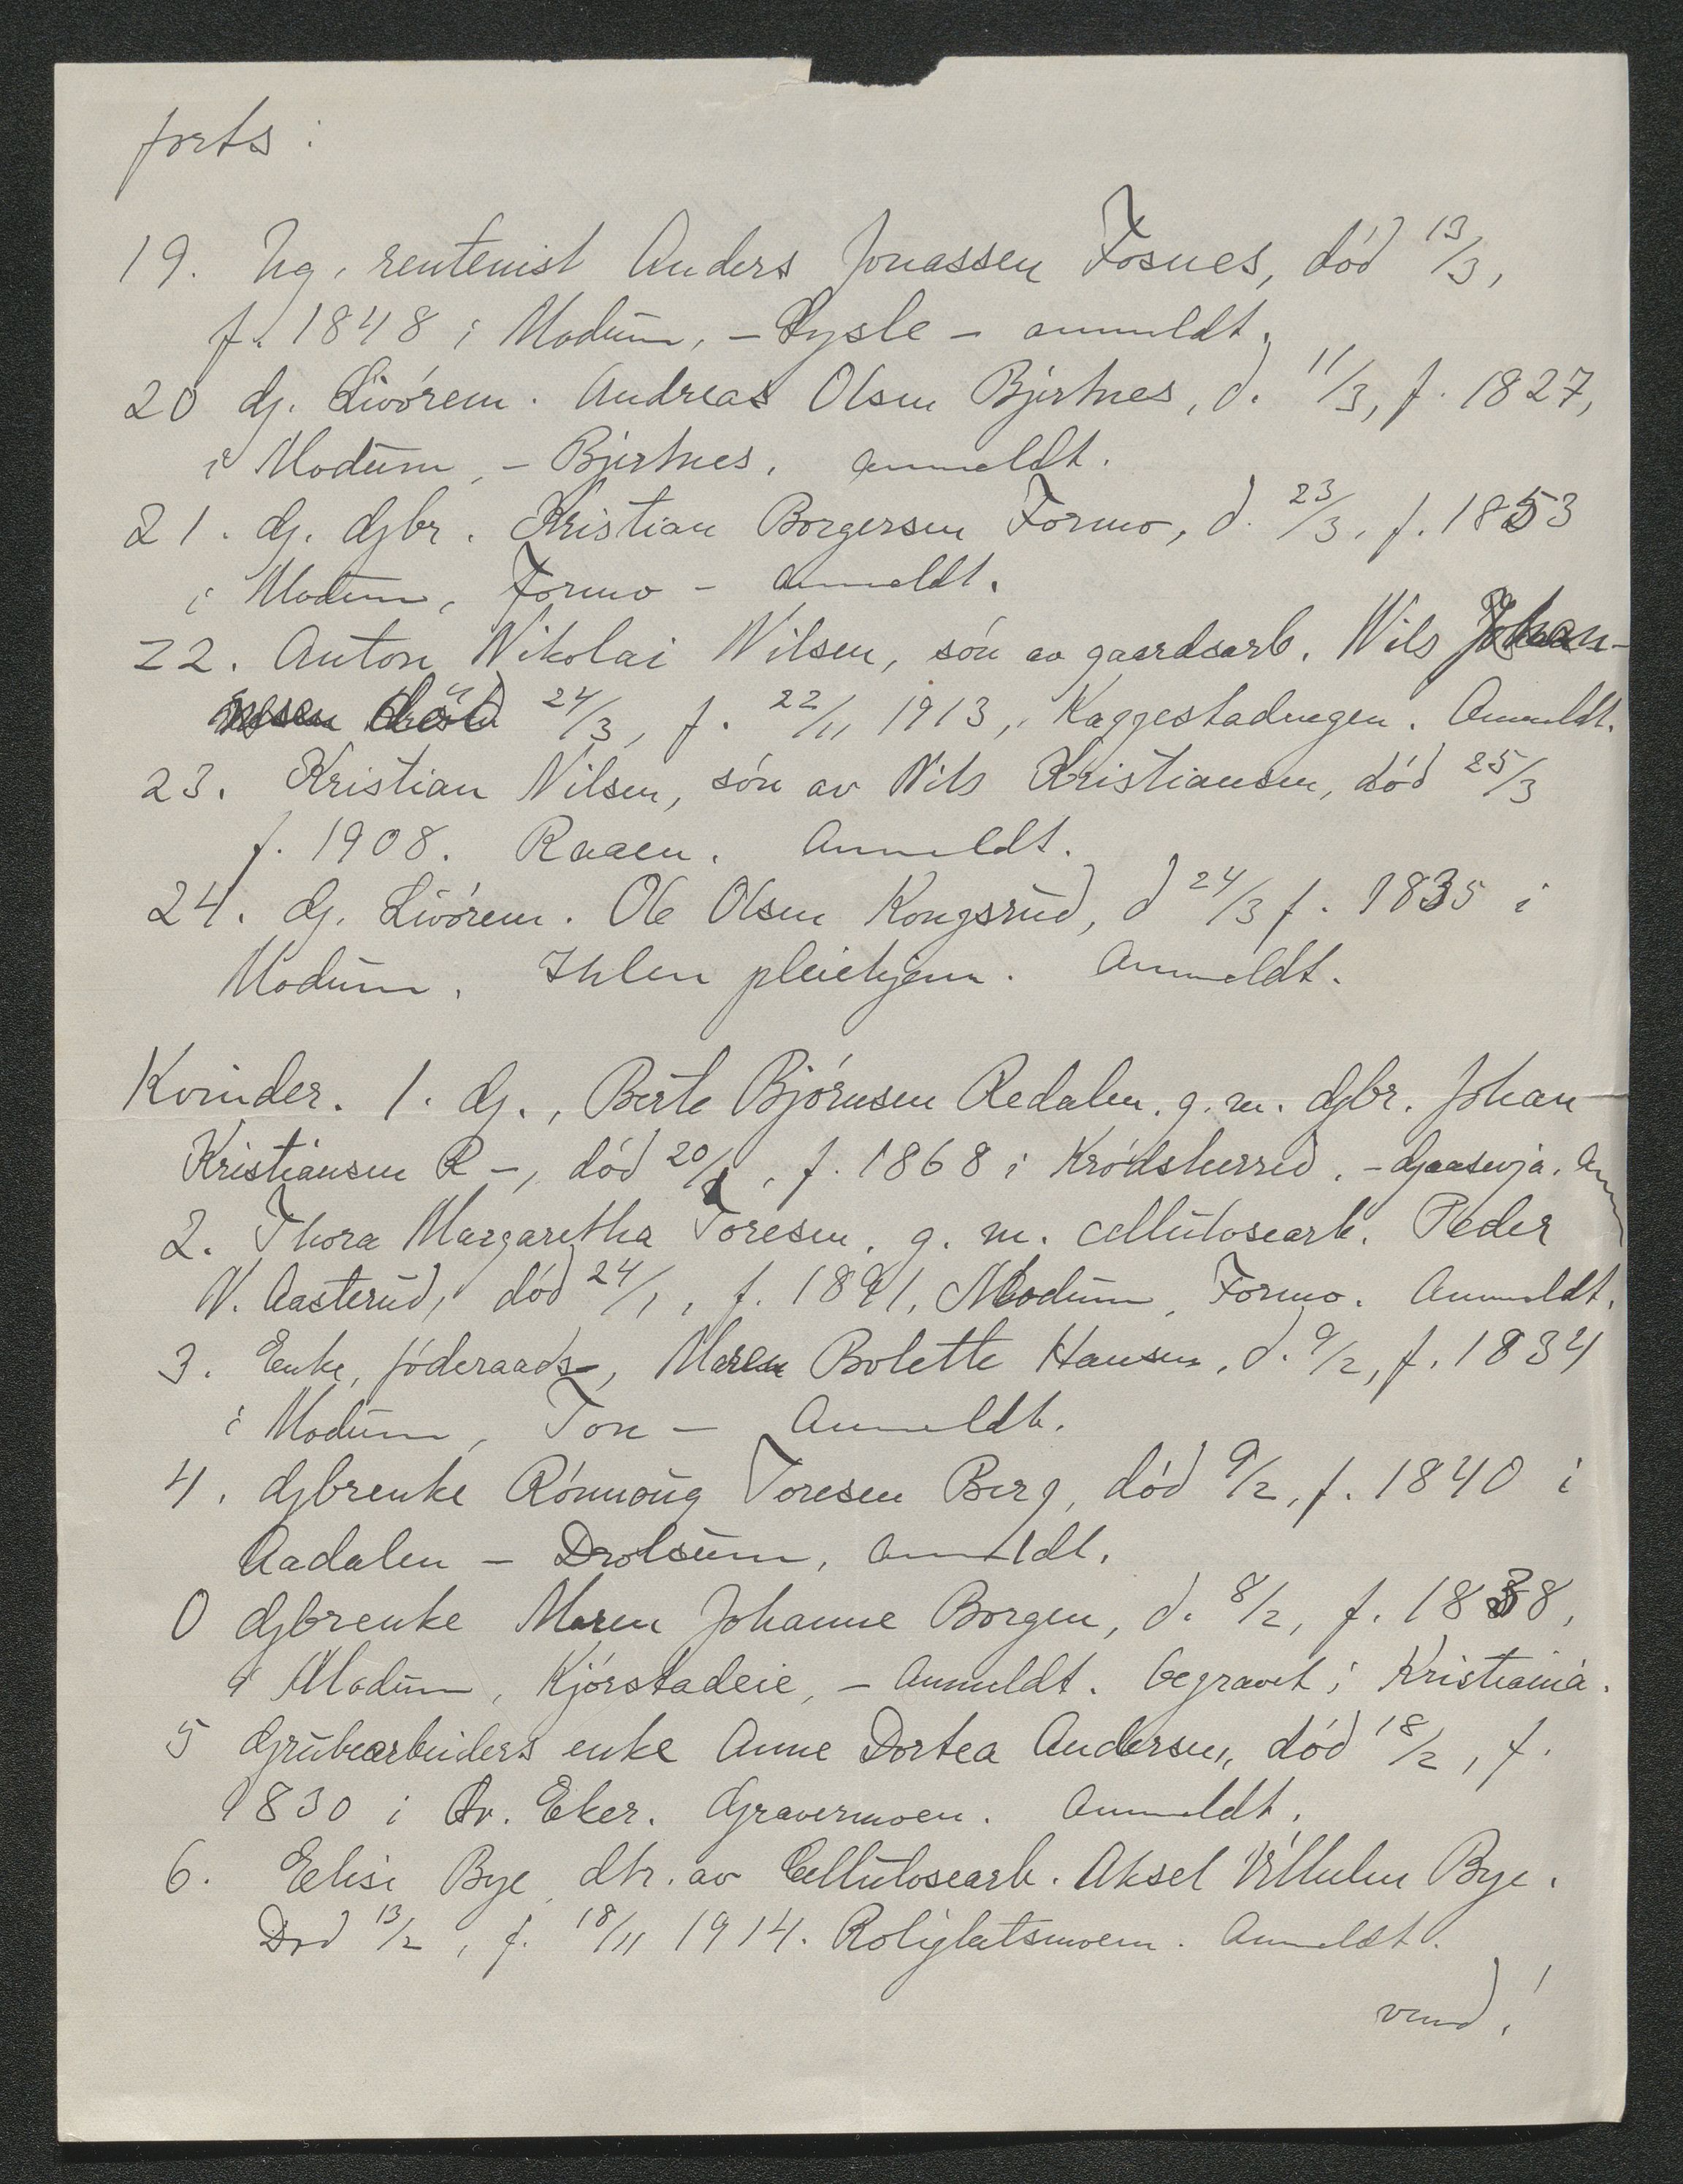 forts :
19. Ug. rentenist Anders Jonassen Fosnes, død 13/3,
f. 1848 i Modum, - Sysle - anmeldt.
20 Gj. Livörem. Andreas Olsen Bjertnes, d. 11/3, f. 1827,
i Modum, - Bjertnes. anmeldt.
21. Gj. Gjbr. Kristian Borgersen Formo, d. 23/3, f. 1853
i Modum, Formo - anmeldt.
22. Anton Nikolai Nilsen, sön av gaardsarb. Nils Johan-
nesen död 24/3, f. 22/11 1913, Kaggestadengen. Anmeldt.
23. Kristian Nilsen, sön av Nils Kristiansen, död 25/3
f. 1908. Raaen. Anmeldt.
24. Gj. Livörem. Ole Olsen Kongsrud, d 24/3 f. 1835 i
Modum. Ihlen pleiehjem. Anmeldt.
Kvinder. 1. Gj., Berte Björnsen Redalen. g. m. Gjbr. Johan
Kristiansen R-, död 20/1, f. 1868 i Krödsherred. - Gjaasevja. Anm
2. Thora Margaretha Toresen. g. m. cellulosearb. Peder
N. Aasterud, död 24/1, f. 1891, Modum, Formo. Anmeldt.
3. Enke, föderaads-, Maren Bolette Hansen, d. 9/2, f. 1834
i Modum, Ton - Anmeldt.
4. Gjbrenke Rönnoug Toresen Berg, död 9/2, f. 1840 i
Aadalen - Drolsum, anmeldt.
0 Gjbrenke Maren Johanne Borgen, d. 8/2, f. 1838,
i Modum, Kjörstadeie, - Anmeldt. begravet i Kristiania.
5 Grubearbeiders enke Anne Dortea Andersen, död 18/2, f.
1830 i Öv. Eker. Gravermoen. Anmeldt.
6. Elise Bye, dtr. av Cellulosearb. Aksel Vilhelm Bye.
Död 13/2, f. 18/11 1914. Rolighetsmoen. Anmeldt.
vend!